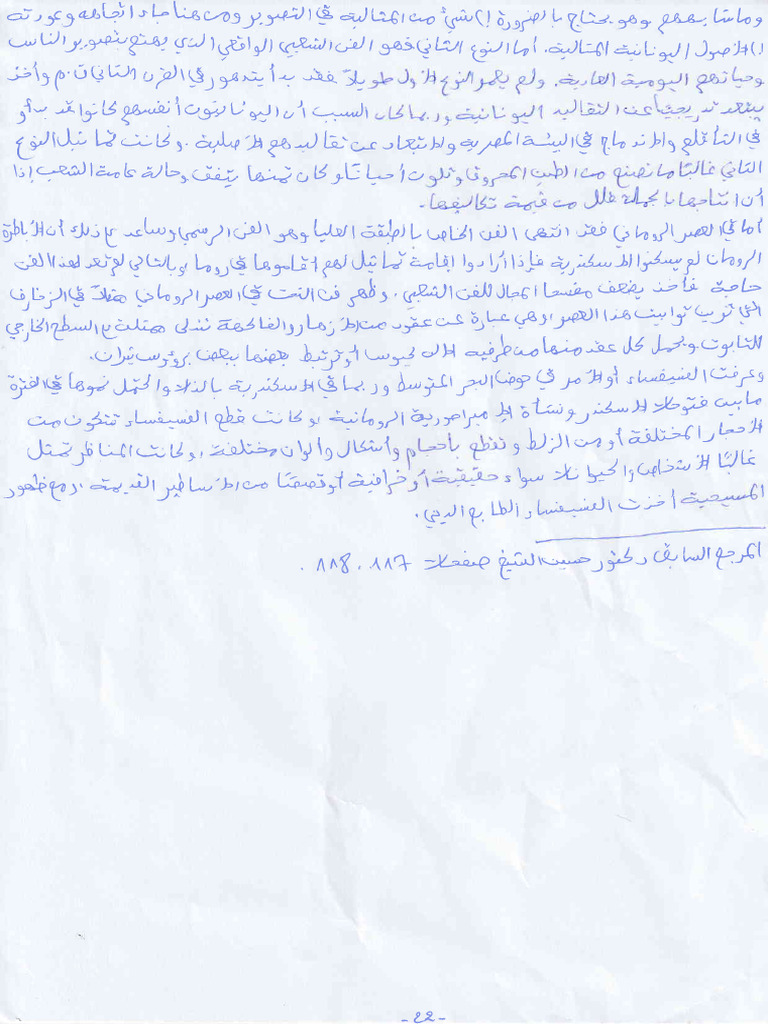 وما شابههم وهو يحتاج بالضرورة إلى شيء من المثالية في التصوير ومن هنا جاء اتجاهه وعودته
إلى الأصول اليونانية المثالية. أما النوع الثاني فهو الفن الشعبي الواقعي الذي يهتم بتصوير الناس
وحياتهم اليومية العادية. ولم يعمر النوع الأول طويلاً فقد بدأ يتدهور في القرن الثاني ق.م وأخذ
يبتعد تدريجيًا عن التقاليد اليونانية وربما كان السبب أن اليونانيون أنفسهم كانوا قد بدأو
في التأقلم والاندماج في البيئة المصرية والابتعاد عن تقاليدهم الأصلية. وكانت تماثيل النوع
الثاني غالبًا ما تصنع من الطين المحروق وتلون أحيانًا وكان ثمنها يتفق وحالة عامة الشعب إذا
أن انتاجها بالجملة قلل من قيمة تكاليفها.
أما في العصر الروماني فقد انتهى الفن الخاص بالطبقة العليا وهو الفن الرسمي وساعد على ذلك أن الأباطرة
الرومان لم يسكنوا الاسكندرية فإذا أرادوا إقامة تماثيل لهم أقاموها في روما وبالتالي لم تعد لهذا الفن
حاجة فأخذ يضعف مفسحا المجال للفن الشعبي. وظهر فن النحت في العصر الروماني مثلاً في الزخارف
التي تزين توابيت هذا العصر، وهي عبارة عن عقود من الأزهار والفاكهة تتدلى على السطح الخارجي
للتابوت ويحمل كل عقد منها من طرفيه الاله ايروس أو ترتبط بعضها ببعض برؤوس ثيران.
وعرفت الفسيفساء أولا في حوض البحر المتوسط وربما في الاسكندرية بالذات واكتمل نموها في الفترة
ما بين فتوحات الاسكندر ونشأة الامبراطورية الرومانية، وكانت قطع الفسيفساء تتكون من
الأحجار المختلفة أو من الزلط وتقطع بأحجام وأشكال وألوان مختلفة، وكانت المناظر تمثل
غالبًا الأشخاص والحيوانات سواء حقيقية أو خرافية أو قصصًا من الأساطير القديمة، ومع ظهور
المسيحية أخذت الفسيفساء الطابع الديني.
المرجع السابق دكتور حسين الشيخ صفحات 117، 118.
- 22 -